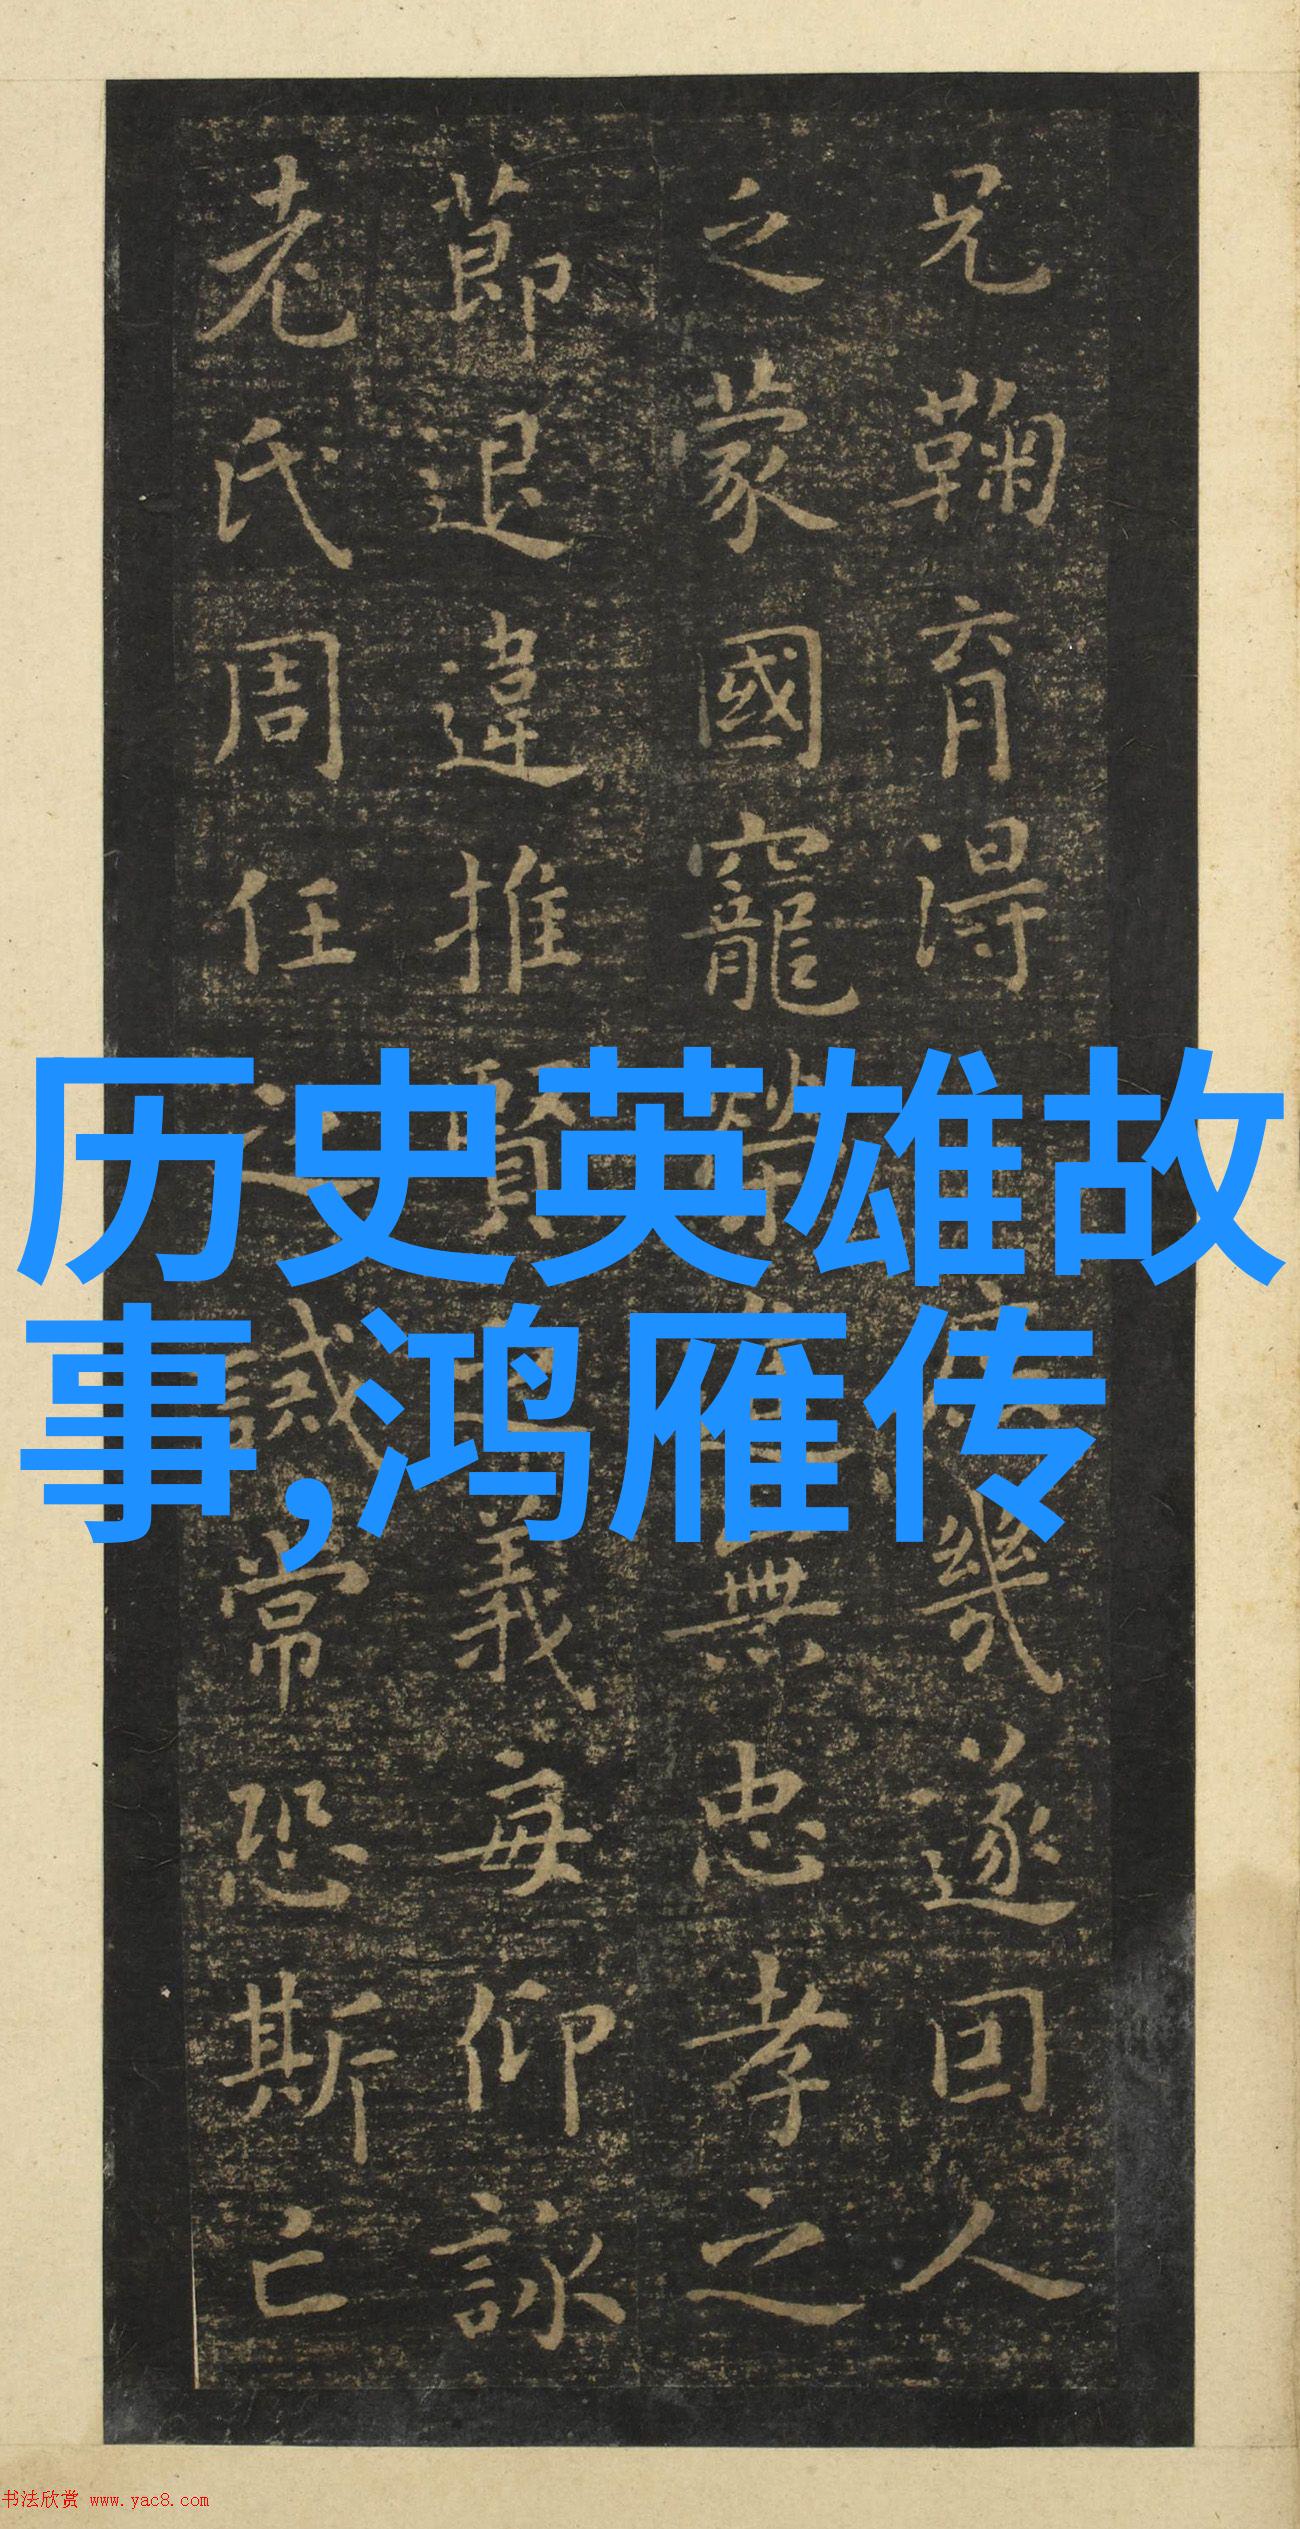 兄鞠育得庶幾遂因人
之蒙國寵榮進無忠孝之
莭退違推賢之義每仰詠
老氏周任之誡常恐斯亡
历史英雄故
事,鸿雁传
书法欣赏 www.yac8.com